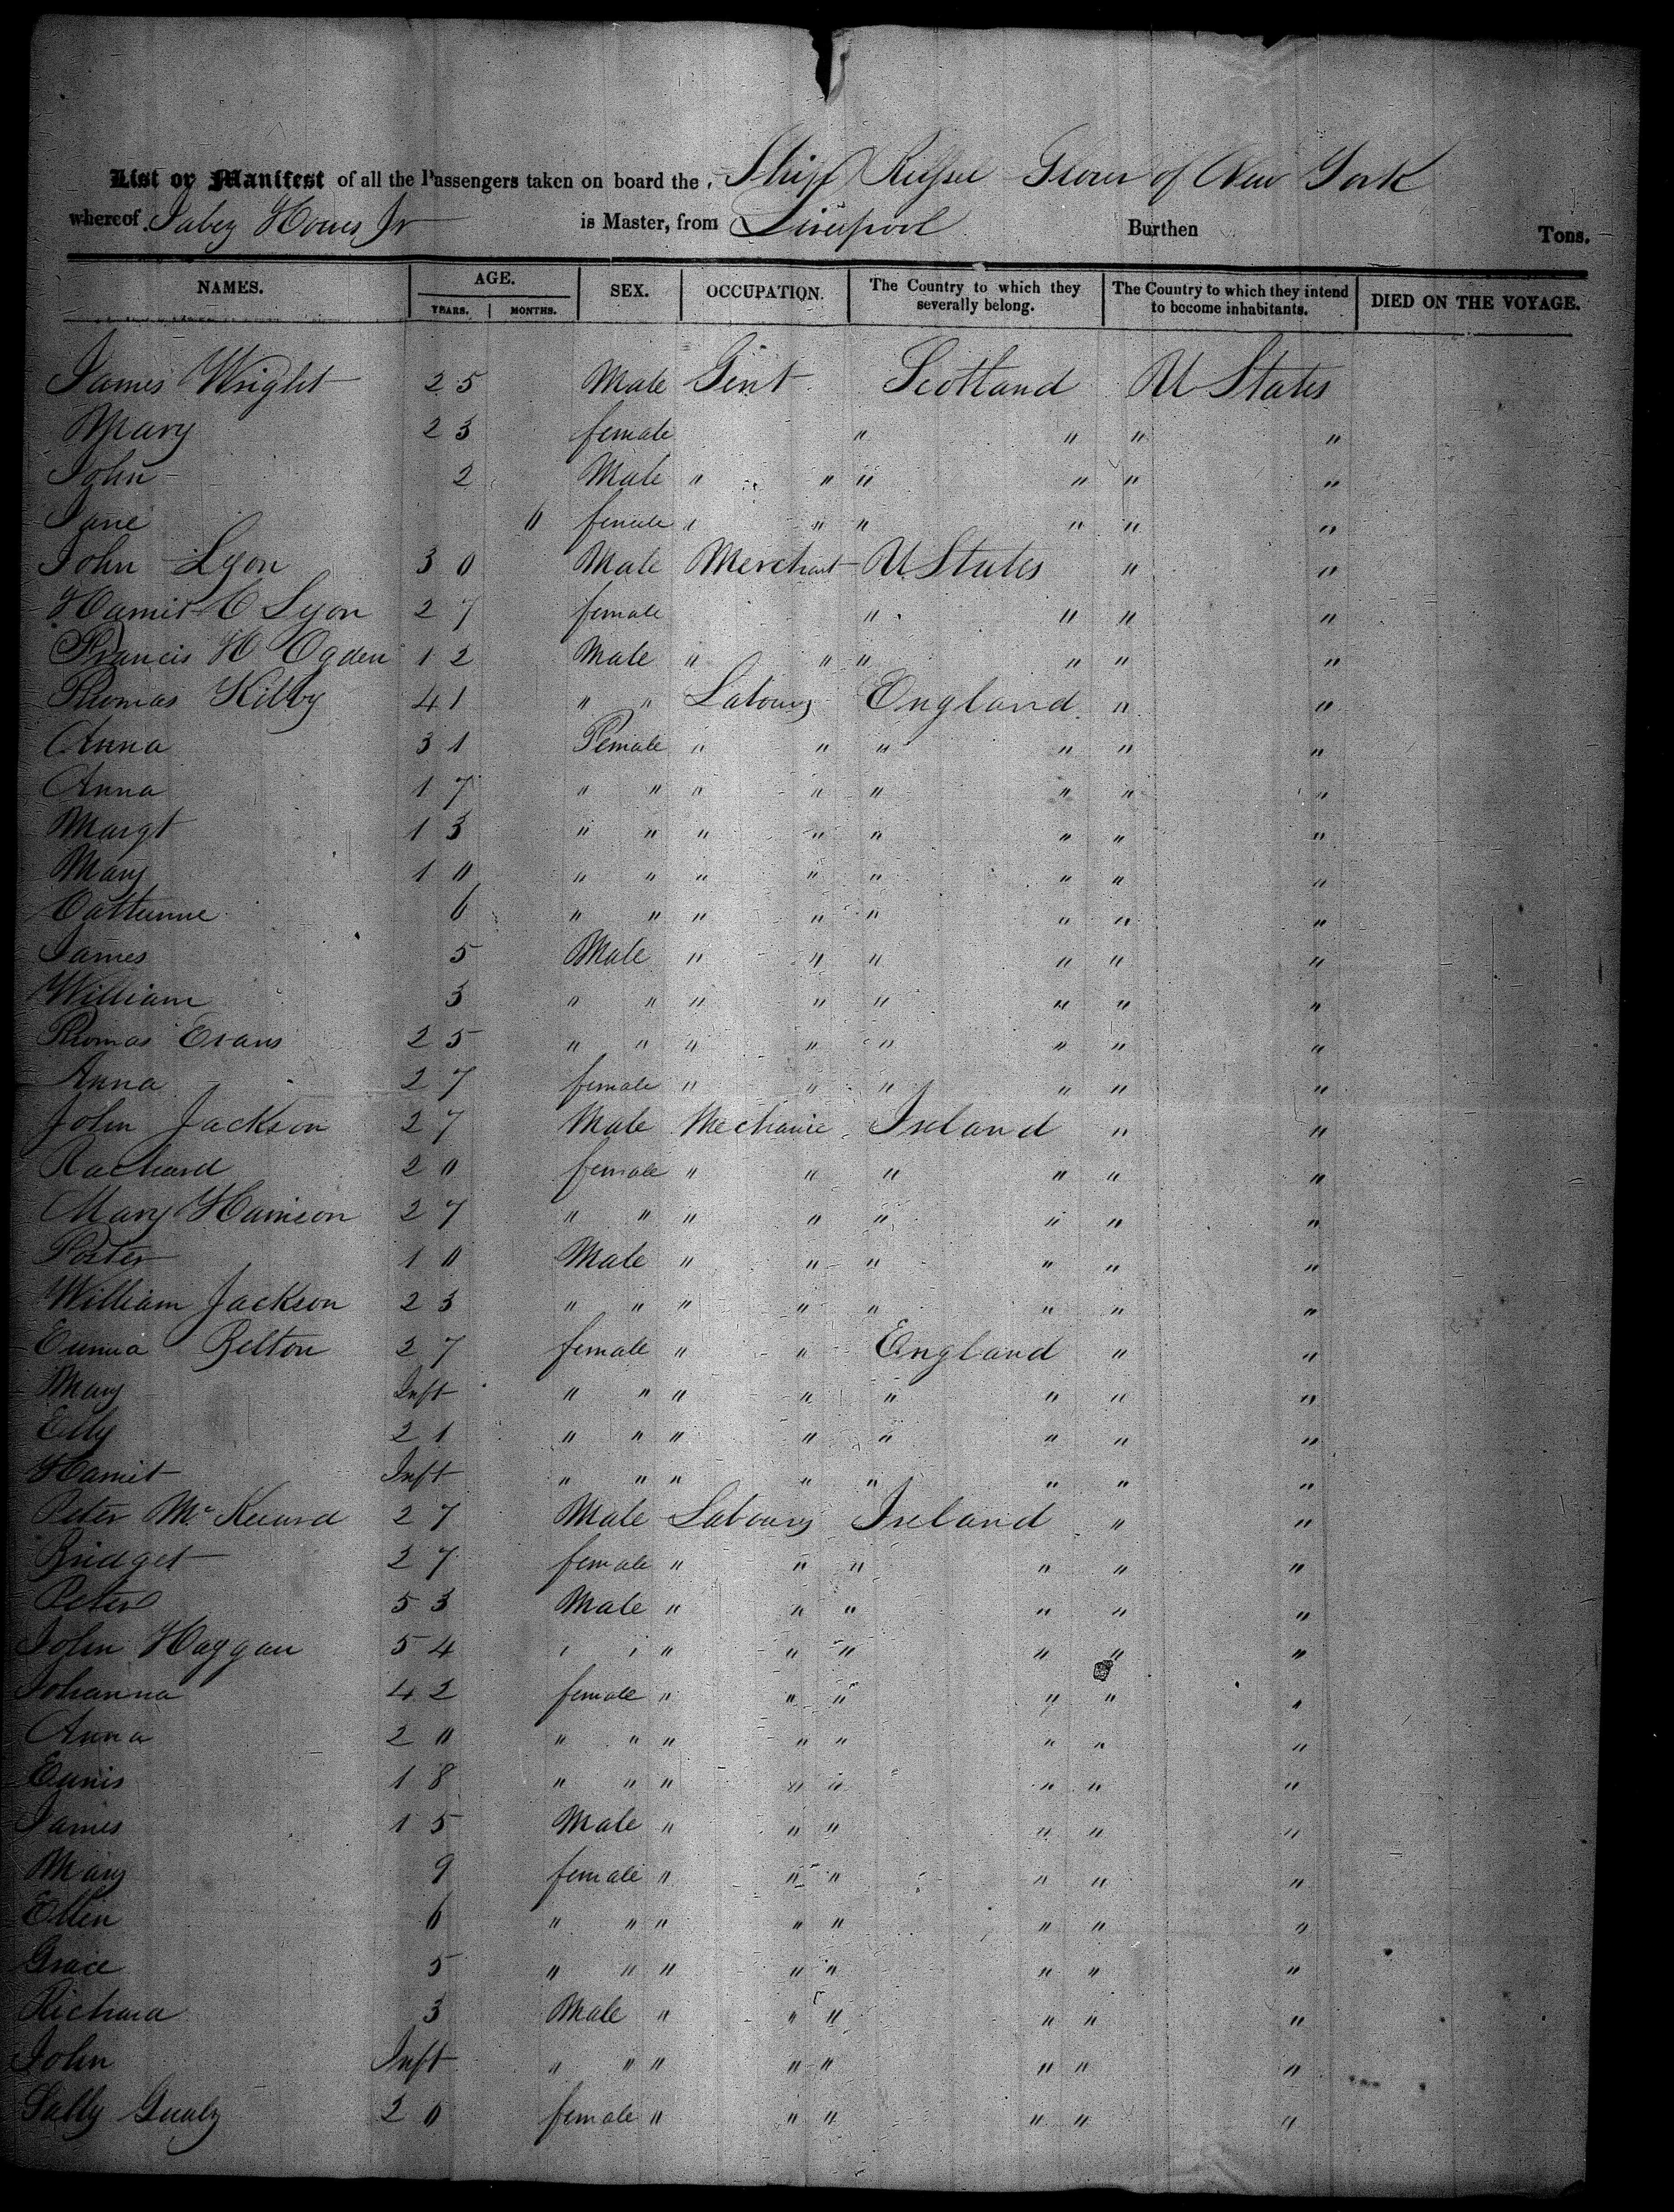 List or Manifest of all the Passengers taken on board the Ship Russel Glover of New York
whereof Jabez Howes Jr is Master, from Liverpool Burthen Tons.
NAMES. AGE. YEARS. MONTHS. SEX. OCCUPATION. The Country to which they severally belong. The Country to which they intend to become inhabitants. DIED ON THE VOYAGE.
James Wright 25 Male Gent Scotland U States
Mary 23 female " " " "
John 2 Male " " " " " "
Jane female " " " " " "
John Lyon 30 Male Merchant U States " "
Harriet C Lyon 27 female " " " "
Francis H Ogden 12 Male " " " " " "
Thomas Kilby 41 " " Labourer England " "
Anna 31 Female " " " " " "
Anna 17 " " " " " " " "
Margt 13 " " " " " " " "
Mary 10 " " " " " " " "
Catherine 6 " " " " " " " "
James 5 Male " " " " " "
William 3 " " " " " " " "
Thomas Evans 25 " " " " " " " "
Anna 27 female " " " " " "
John Jackson 27 Male Mechanic Ireland " "
Rachard 20 female " " " " " "
Mary Harrison 27 " " " " " " " "
10 Male " " " " " "
William Jackson 23 " " " " " " " "
Emma Belton 27 female " " England " "
Mary Inft " " " " " " " "
Elly 21 " " " " " " " "
Harriet Inft " " " " " " " "
Peter Mc 27 Male Labourer Ireland " "
Bridget 27 female " " " " " "
Peter 53 Male " " " " " "
John Haggan 54 " " " " " " " "
Johanna 42 female " " " " " "
Anna 20 " " " " " " " "
Eunis 18 " " " " " " " "
James 15 Male " " " " " "
Mary 9 female " " " " " "
Ellen 6 " " " " " " " "
Grace 5 " " " " " " " "
Richard 3 Male " " " " " "
John Inft " " " " " " " "
Sally 20 female " " " " " "